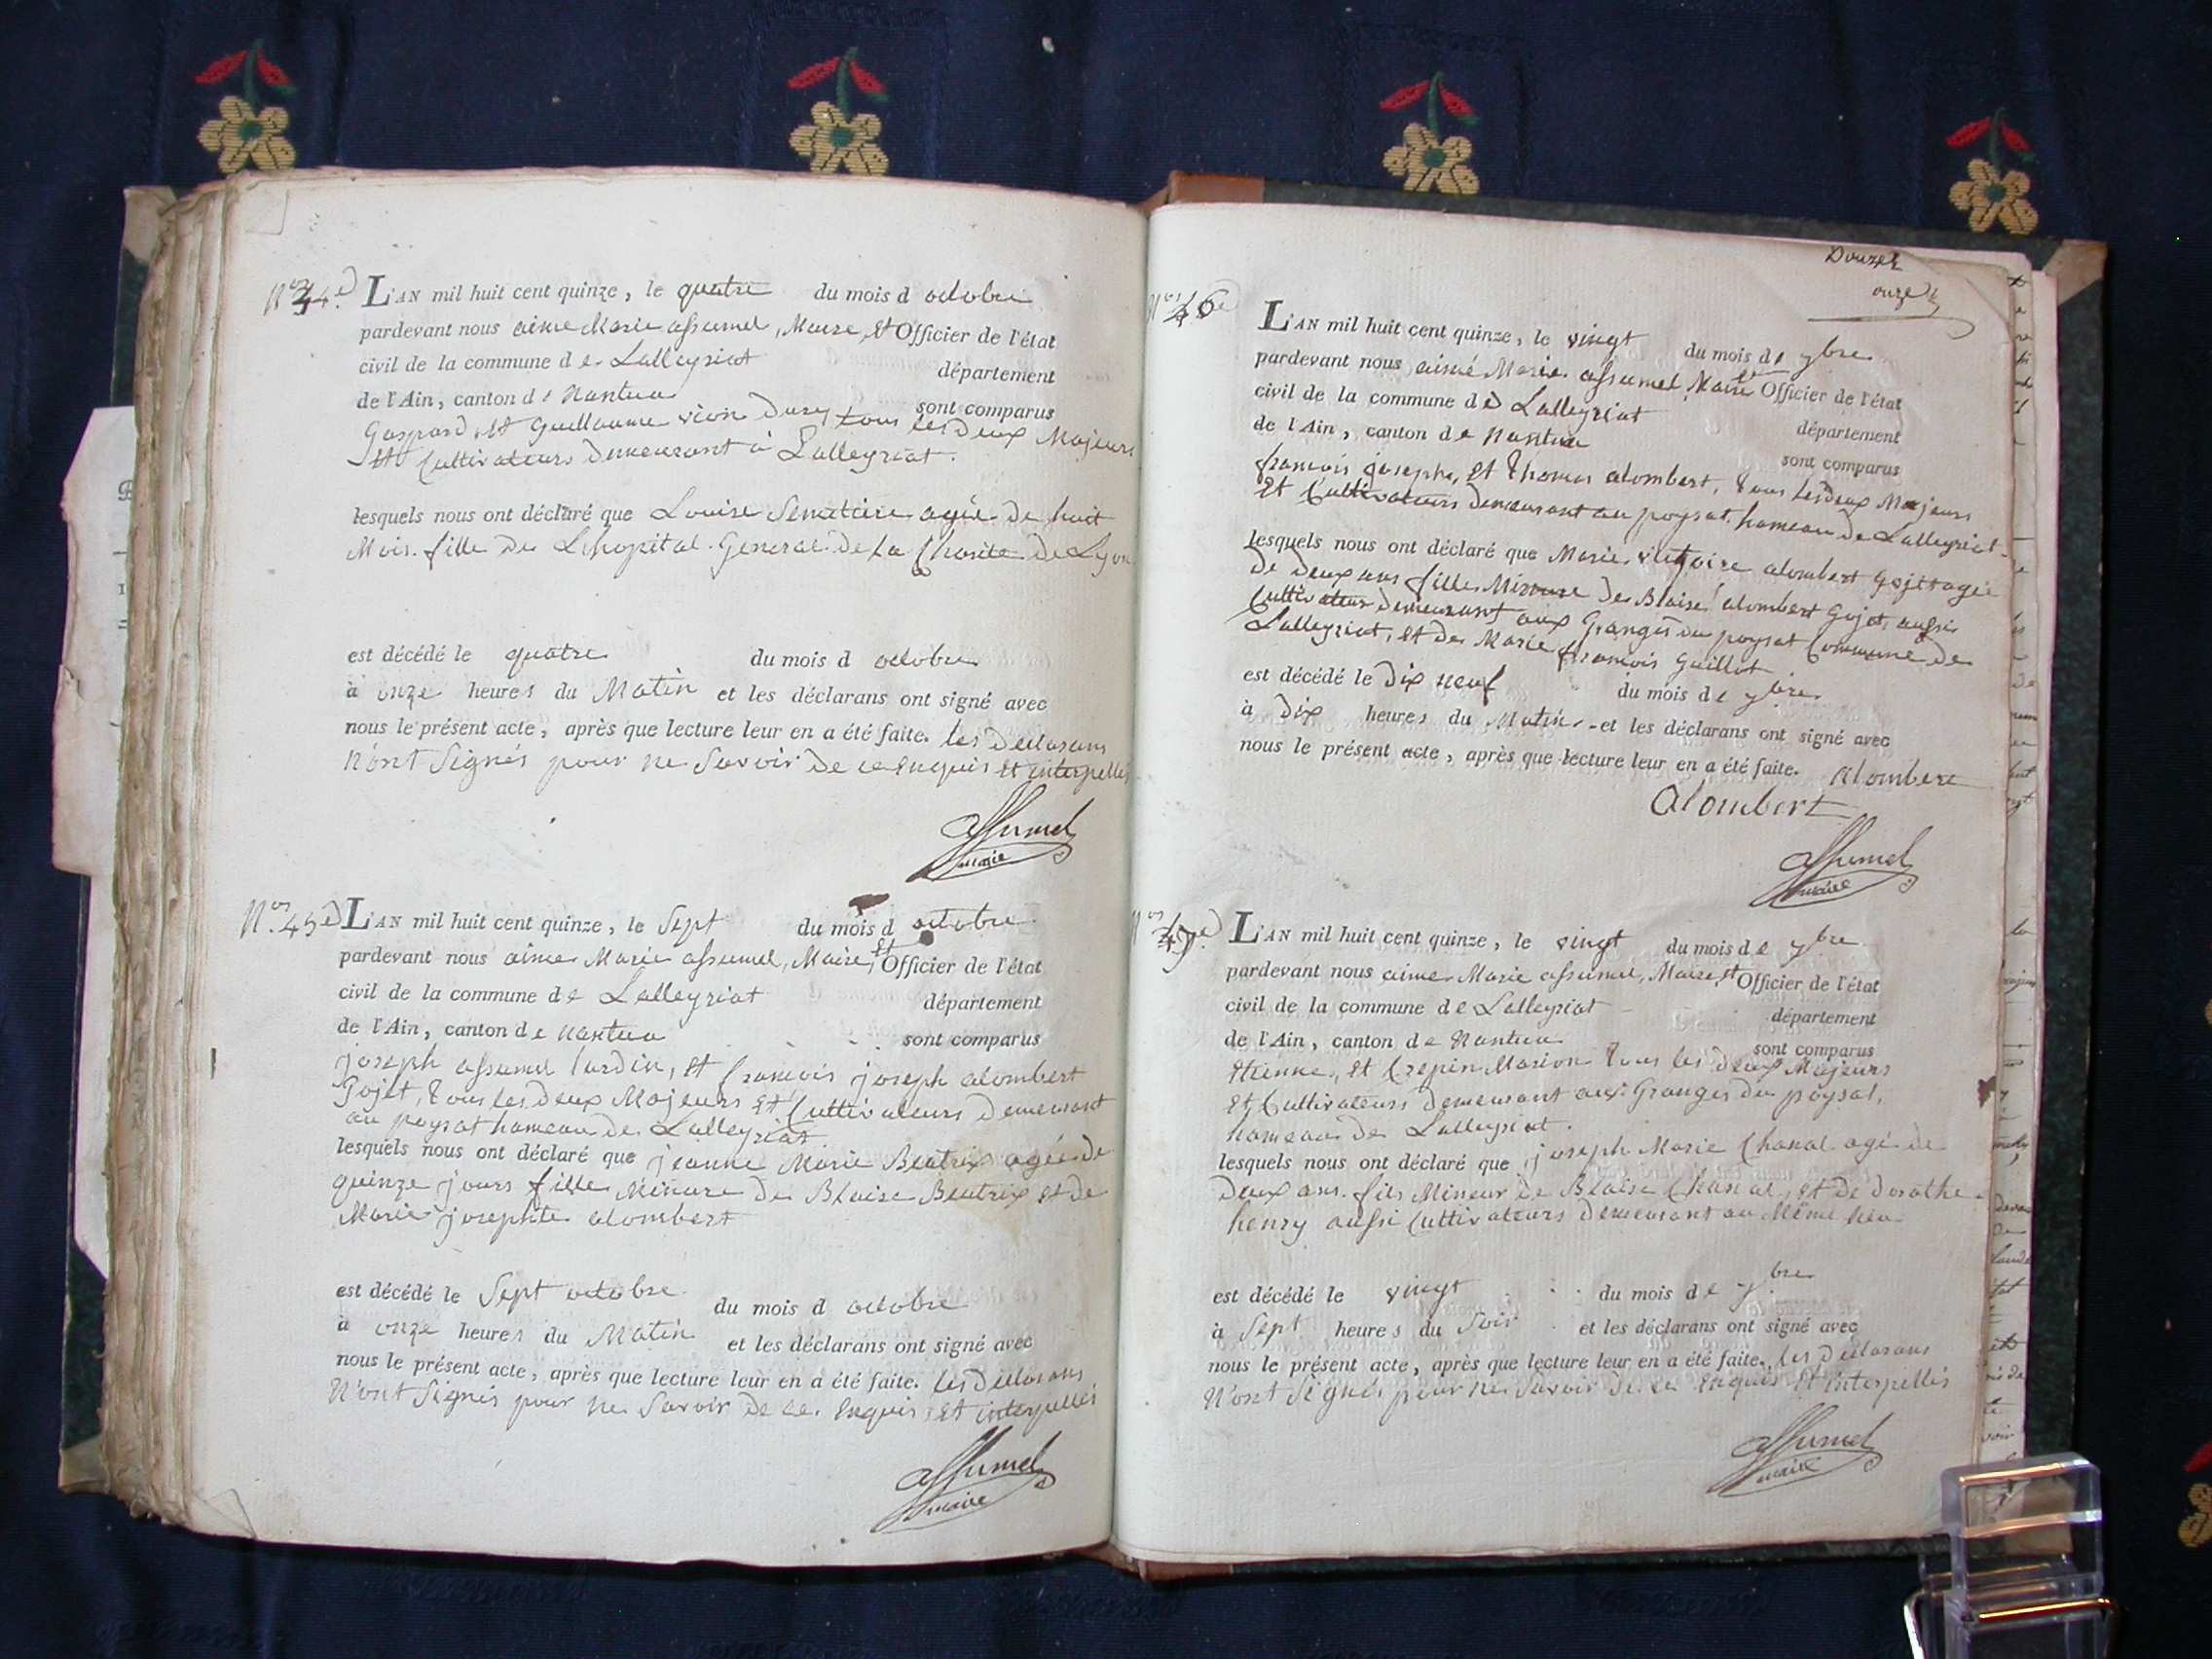 Nos 44e
L'AN mil huit cent quinze, le quatre du mois d octobre
pardevant nous aime Marie assumel, Maire, et Officier de l'état
civil de la commune de Lalleyriat département
de l'Ain, canton de Nantua sont comparus
Gaspard et Guillaume vion dury tous les deux Majeurs
et Cultivateurs demeurant à Lalleyriat.
lesquels nous ont déclaré que Louise agée de huit
Mois. fille de Lhopital General de la Charite de Lyon
est décédé le quatre du mois d octobre
à onze heures du Matin et les déclarans ont signé avec
nous le présent acte, après que lecture leur en a été faite. les declarans
N'ont Signés pour ne Savoir de ce Enquis et interpellés
assumel
maire
Nos 45e
L'AN mil huit cent quinze, le Sept du mois d octobre
pardevant nous aime Marie assumel, Maire, et Officier de l'état
civil de la commune de Lalleyriat département
de l'Ain, canton de Nantua sont comparus
joseph assumel lurdin, et francois joseph alombert
Gojet, tous les deux Majeurs et Cultivateurs demeurant
au poysat hameau de Lalleyriat
lesquels nous ont déclaré que jeanne Marie Beatrix agée de
quinze jours fille Mineure de Blaise Beatrix et de
Marie josephte alombert
est décédé le Sept octobre du mois d octobre
à onze heures du Matin et les déclarans ont signé avec
nous le présent acte, après que lecture leur en a été faite. les declarans
N'ont Signés pour ne Savoir de ce Enquis et interpellés
assumel
maire
Douze
onze
Nos 46e
L'AN mil huit cent quinze, le vingt du mois de ybre
pardevant nous aimé Marie assumel, Maire et Officier de l'état
civil de la commune de Lalleyriat département
de l'Ain, canton de Nantua sont comparus
francois josephe, et thomas alombert, tous les deux Majeurs
et Cultivateurs demeurant au poysat hameau de Lalleyriat
lesquels nous ont déclaré que Marie victoire alombert Gojet agée
de deux ans fille Mineure de Blaise alombert Gojet, aussi
Cultivateur demeurant aux Granges du poysat Commune de
Lalleyriat, et de Marie francois Guillot
est décédé le dix neuf du mois de ybre
à dix heures du Matin et les déclarans ont signé avec
nous le présent acte, après que lecture leur en a été faite. Alombert
alombert
assumel
maire
Nos 47e
L'AN mil huit cent quinze, le vingt du mois de ybre
pardevant nous aime Marie assumel, Maire, et Officier de l'état
civil de la commune de Lalleyriat département
de l'Ain, canton de Nantua sont comparus
Etienne, et Crepin Marion tous les deux Majeurs
et Cultivateurs demeurant aux Granges du poysat,
hameau de Lalleyriat.
lesquels nous ont déclaré que joseph Marie Chanal agé de
deux ans. fils Mineur de Blaise Chanal, et de dorothe
henry aussi Cultivateurs demeurant au Même lieu
est décédé le vingt du mois de ybre
à Sept heures du Soir et les déclarans ont signé avec
nous le présent acte, après que lecture leur en a été faite. les declarans
N'ont Signés pour ne Savoir de ce Enquis et interpellés
assumel
maire